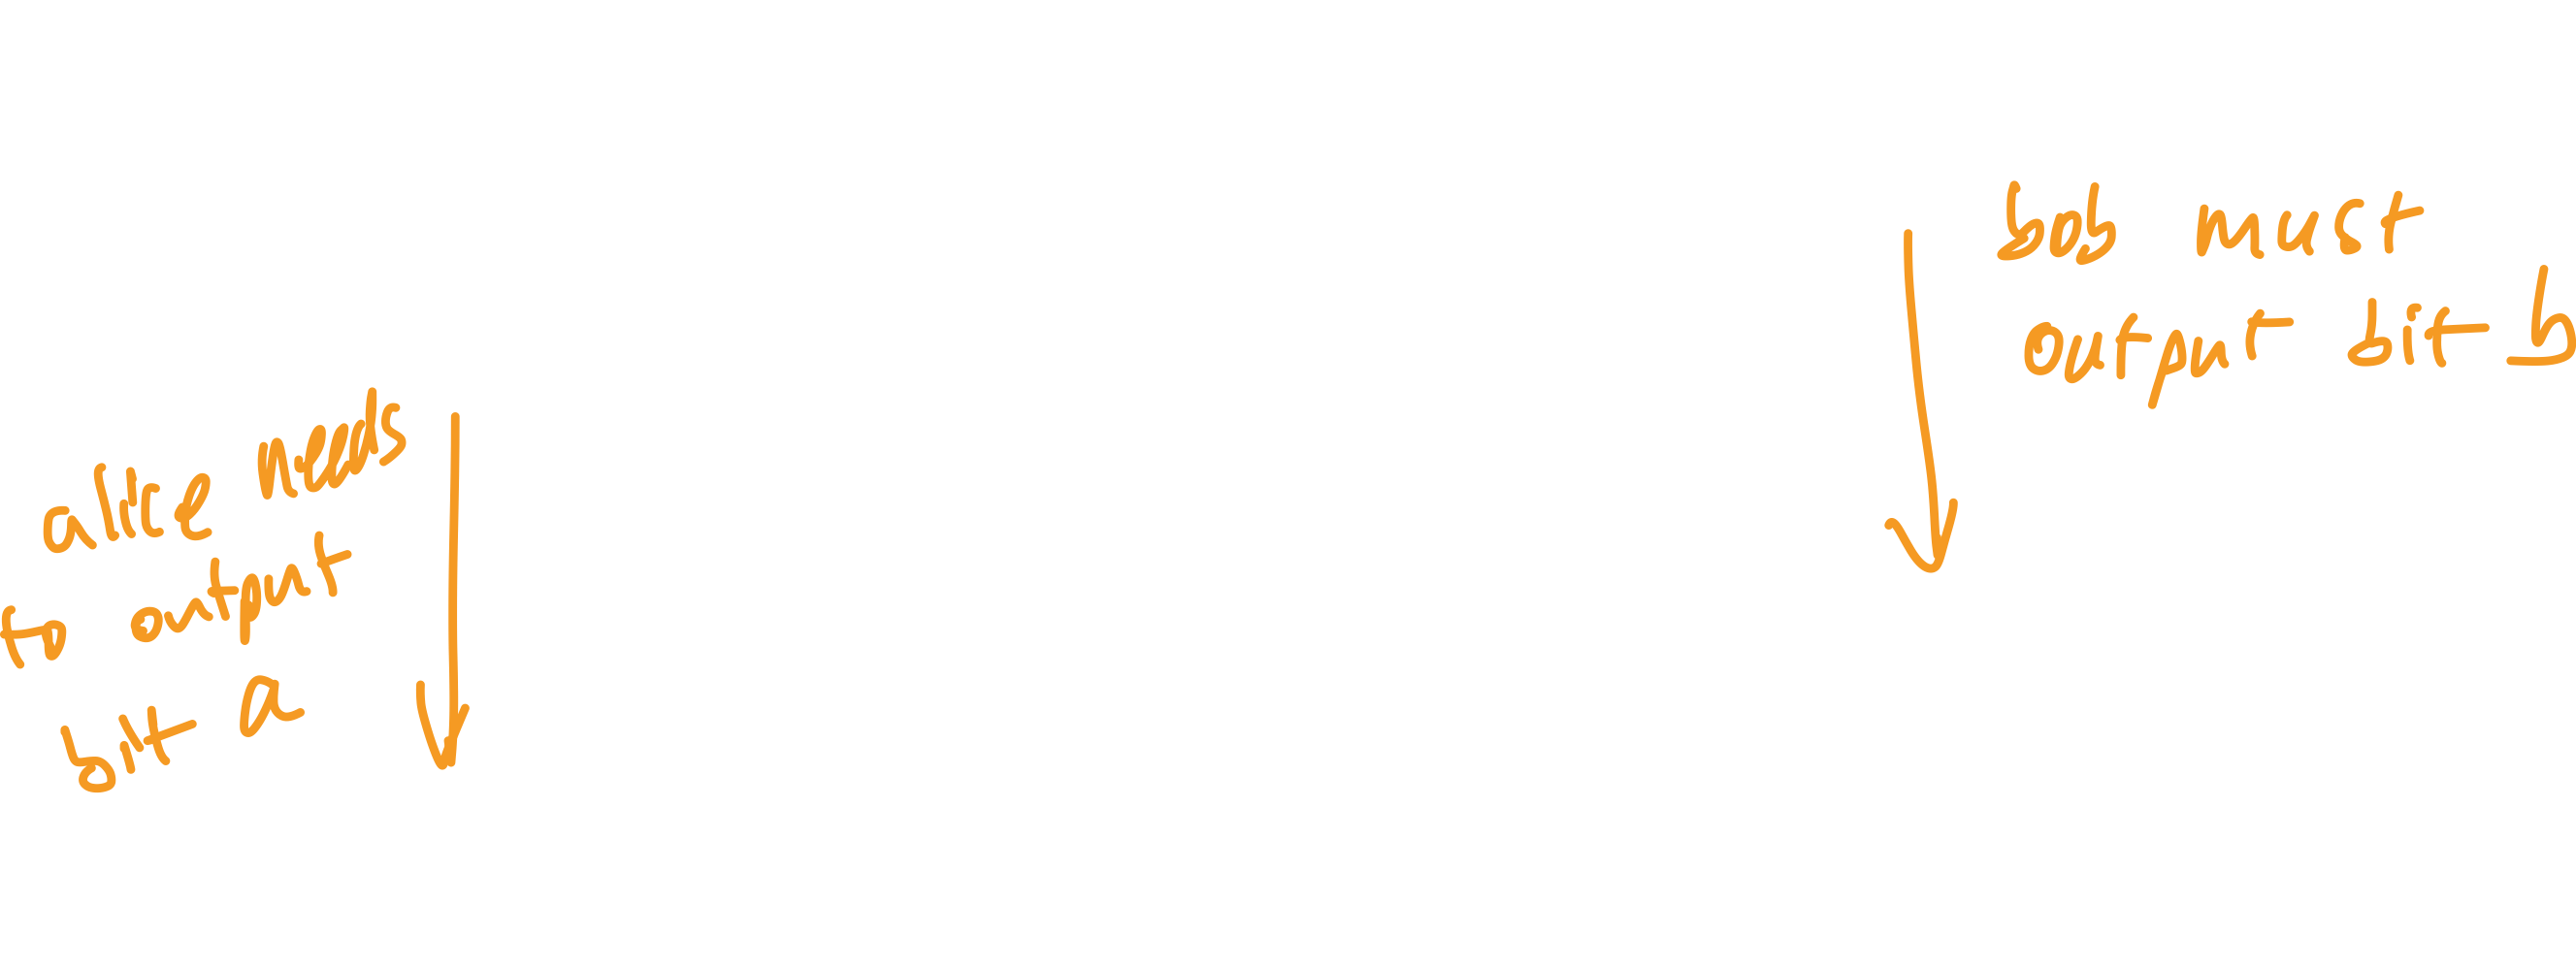 alice needs
to output
bit a
bob must
output bit b